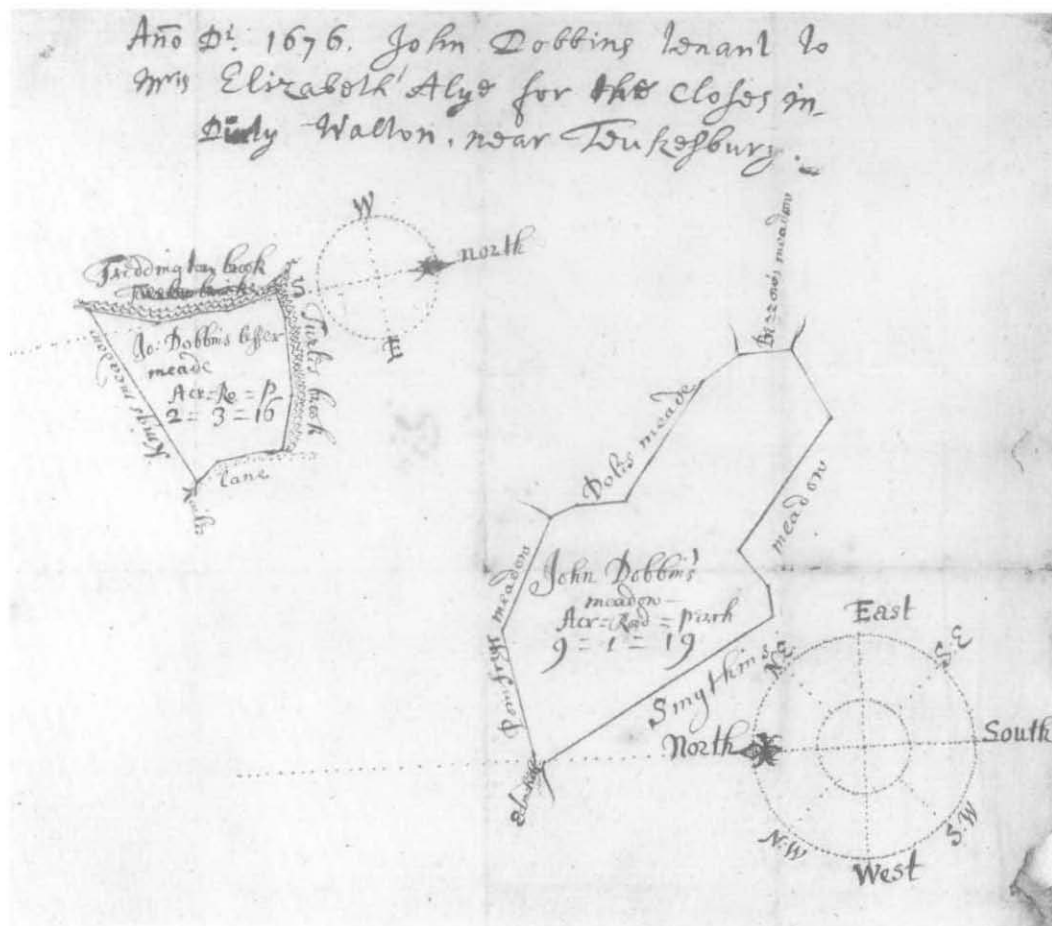 Año Di. 1676. John Dobbins tenant to
Mris Elizabeth Alye for the Closes in
Walton, near Teukesbury.
W
north
S
E
Treddington brook
Jo. Dobbins lesser
meade
Acr = Ro = P
2 = 3 = 16
Kings meadow
Turlis brook
lane
Bizzows meadow
Dolis meade
meadow
John Dobbins
meadow
Acr = Rod = pearch
9 = 1 = 19
meadow
Smythms
East
N.E
S.E
North
South
N.W
S.W
West